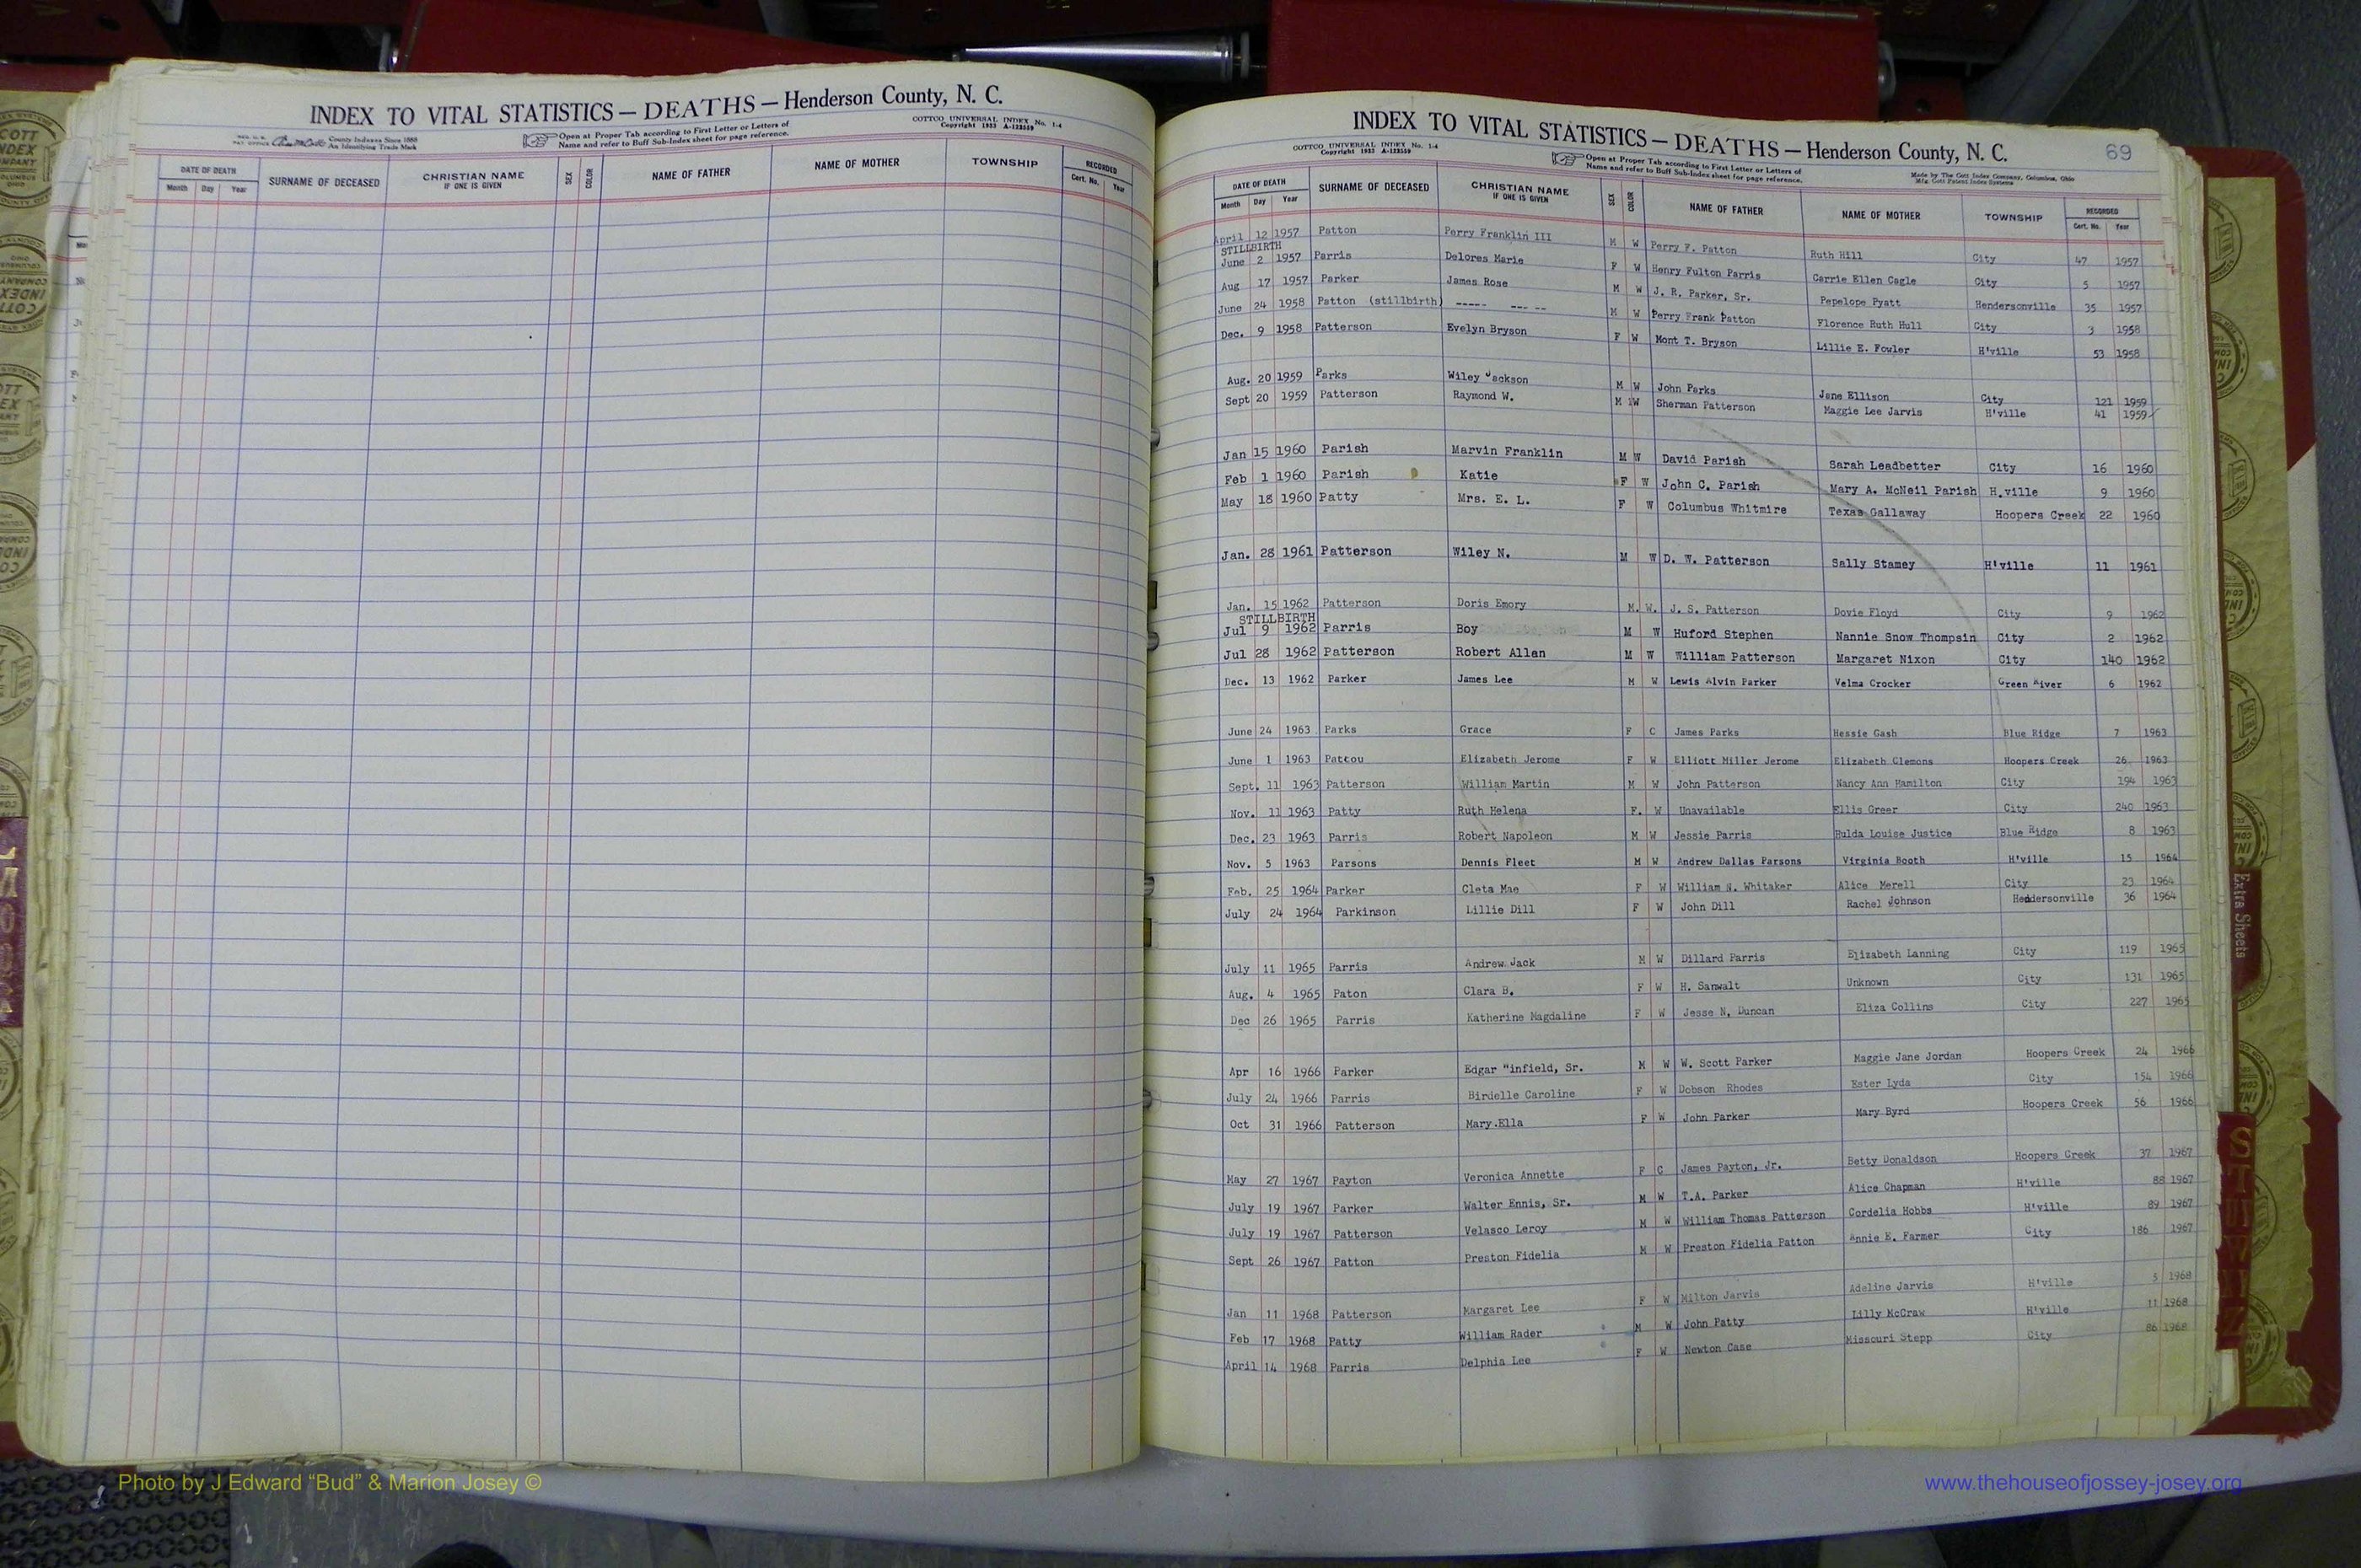 INDEX TO VITAL STATISTICS — DEATHS — Henderson County, N. C.
County Indexes Since 1888
An Identifying Trade Mark
Open at Proper Tab according to First Letter or Letters of
Name and refer to Buff Sub-Index sheet for page reference.
COTTCO UNIVERSAL INDEX No. 1-4
Copyright 1933 A-122559
DATE OF DEATH SURNAME OF DECEASED CHRISTIAN NAME IF ONE IS GIVEN SEX COLOR NAME OF FATHER NAME OF MOTHER TOWNSHIP RECORDED
Month Day Year Cert. No. Year
INDEX TO VITAL STATISTICS — DEATHS — Henderson County, N. C. 69
COTTCO UNIVERSAL INDEX No. 1-4
Copyright 1933 A-122559
Open at Proper Tab according to First Letter or Letters of
Name and refer to Buff Sub-Index sheet for page reference.
Made by The Cott Index Company, Columbus, Ohio
Mfg. Cott Patent Index Systems
DATE OF DEATH SURNAME OF DECEASED CHRISTIAN NAME IF ONE IS GIVEN SEX COLOR NAME OF FATHER NAME OF MOTHER TOWNSHIP RECORDED
Month Day Year Cert. No. Year
April 12 1957 Patton Perry Franklin III M W Perry F. Patton Ruth Hill City 47 1957
STILLBIRTH
June 2 1957 Parris Delores Marie F W Henry Fulton Parris Carrie Ellen Cagle City 5 1957
Aug 17 1957 Parker James Rose M W J. R. Parker, Sr. Pepelope Pyatt Hendersonville 35 1957
June 24 1958 Patton (stillbirth) ----- --- -- M W Perry Frank Patton Florence Ruth Hull City 3 1958
Dec. 9 1958 Patterson Evelyn Bryson F W Mont T. Bryson Lillie E. Fowler H'ville 53 1958
Aug. 20 1959 Parks Wiley Jackson M W John Parks Jane Ellison City 121 1959
Sept 20 1959 Patterson Raymond W. M W Sherman Patterson Maggie Lee Jarvis H'ville 41 1959
Jan 15 1960 Parish Marvin Franklin M W David Parish Sarah Leadbetter City 16 1960
Feb 1 1960 Parish Katie F W John C. Parish Mary A. McNeil Parish H.ville 9 1960
May 18 1960 Patty Mrs. E. L. F W Columbus Whitmire Texas Gallaway Hoopers Creek 22 1960
Jan. 28 1961 Patterson Wiley N. M W D. W. Patterson Sally Stamey H'ville 11 1961
Jan. 15 1962 Patterson Doris Emory M. W. J. S. Patterson Dovie Floyd City 9 1962
STILLBIRTH
Jul 9 1962 Parris Boy M W Huford Stephen Nannie Snow Thompsin City 2 1962
Jul 28 1962 Patterson Robert Allen M W William Patterson Margaret Nixon City 140 1962
Dec. 13 1962 Parker James Lee M W Lewis Alvin Parker Velma Crocker Green River 6 1962
June 24 1963 Parks Grace F C James Parks Hessie Gash Blue Ridge 7 1963
June 1 1963 Pattou Elizabeth Jerome F W Elliott Miller Jerome Elizabeth Clemons Hoopers Creek 26 1963
Sept. 11 1963 Patterson William Martin M W John Patterson Nancy Ann Hamilton City 194 1963
Nov. 11 1963 Patty Ruth Helena F. W Unavailable Ellis Greer City 240 1963
Dec. 23 1963 Parris Robert Napoleon M W Jessie Parris Hulda Louise Justice Blue Ridge 8 1963
Nov. 5 1963 Parsons Dennis Fleet M W Andrew Dallas Parsons Virginia Booth H'ville 15 1964
Feb. 25 1964 Parker Cleta Mae F W William N. Whitaker Alice Merell City 23 1964
July 24 1964 Parkinson Lillie Dill F W John Dill Rachel Johnson Hendersonville 36 1964
July 11 1965 Parris Andrew Jack M W Dillard Parris Elizabeth Lanning City 119 1965
Aug. 4 1965 Paton Clara B. F W H. Sanwalt Unknown City 131 1965
Dec 26 1965 Parris Katherine Magdaline F W Jesse N. Duncan Eliza Collins City 227 1965
Apr 16 1966 Parker Edgar "infield, Sr. M W W. Scott Parker Maggie Jane Jordan Hoopers Creek 24 1966
July 24 1966 Parris Birdelle Caroline F W Dobson Rhodes Ester Lyda City 154 1966
Oct 31 1966 Patterson Mary.Ella F W John Parker Mary Byrd Hoopers Creek 56 1966
May 27 1967 Payton Veronica Annette F C James Payton, Jr. Betty Donaldson Hoopers Creek 37 1967
July 19 1967 Parker Walter Ennis, Sr. M W T.A. Parker Alice Chapman H'ville 88 1967
July 19 1967 Patterson Velasco Leroy M W William Thomas Patterson Cordelia Hobbs H'ville 89 1967
Sept 26 1967 Patton Preston Fidelia M W Preston Fidelia Patton Annie E. Farmer City 186 1967
Jan 11 1968 Patterson Margaret Lee F W Milton Jarvis Adeline Jarvis H'ville 5 1968
Feb 17 1968 Patty William Rader M W John Patty Lilly McCraw H'ville 11 1968
April 14 1968 Parris Delphia Lee F W Newton Case Missouri Stepp City 86 1968
Extra Sheets
Photo by J Edward “Bud” & Marion Josey ©
www.thehouseofjossey-josey.org